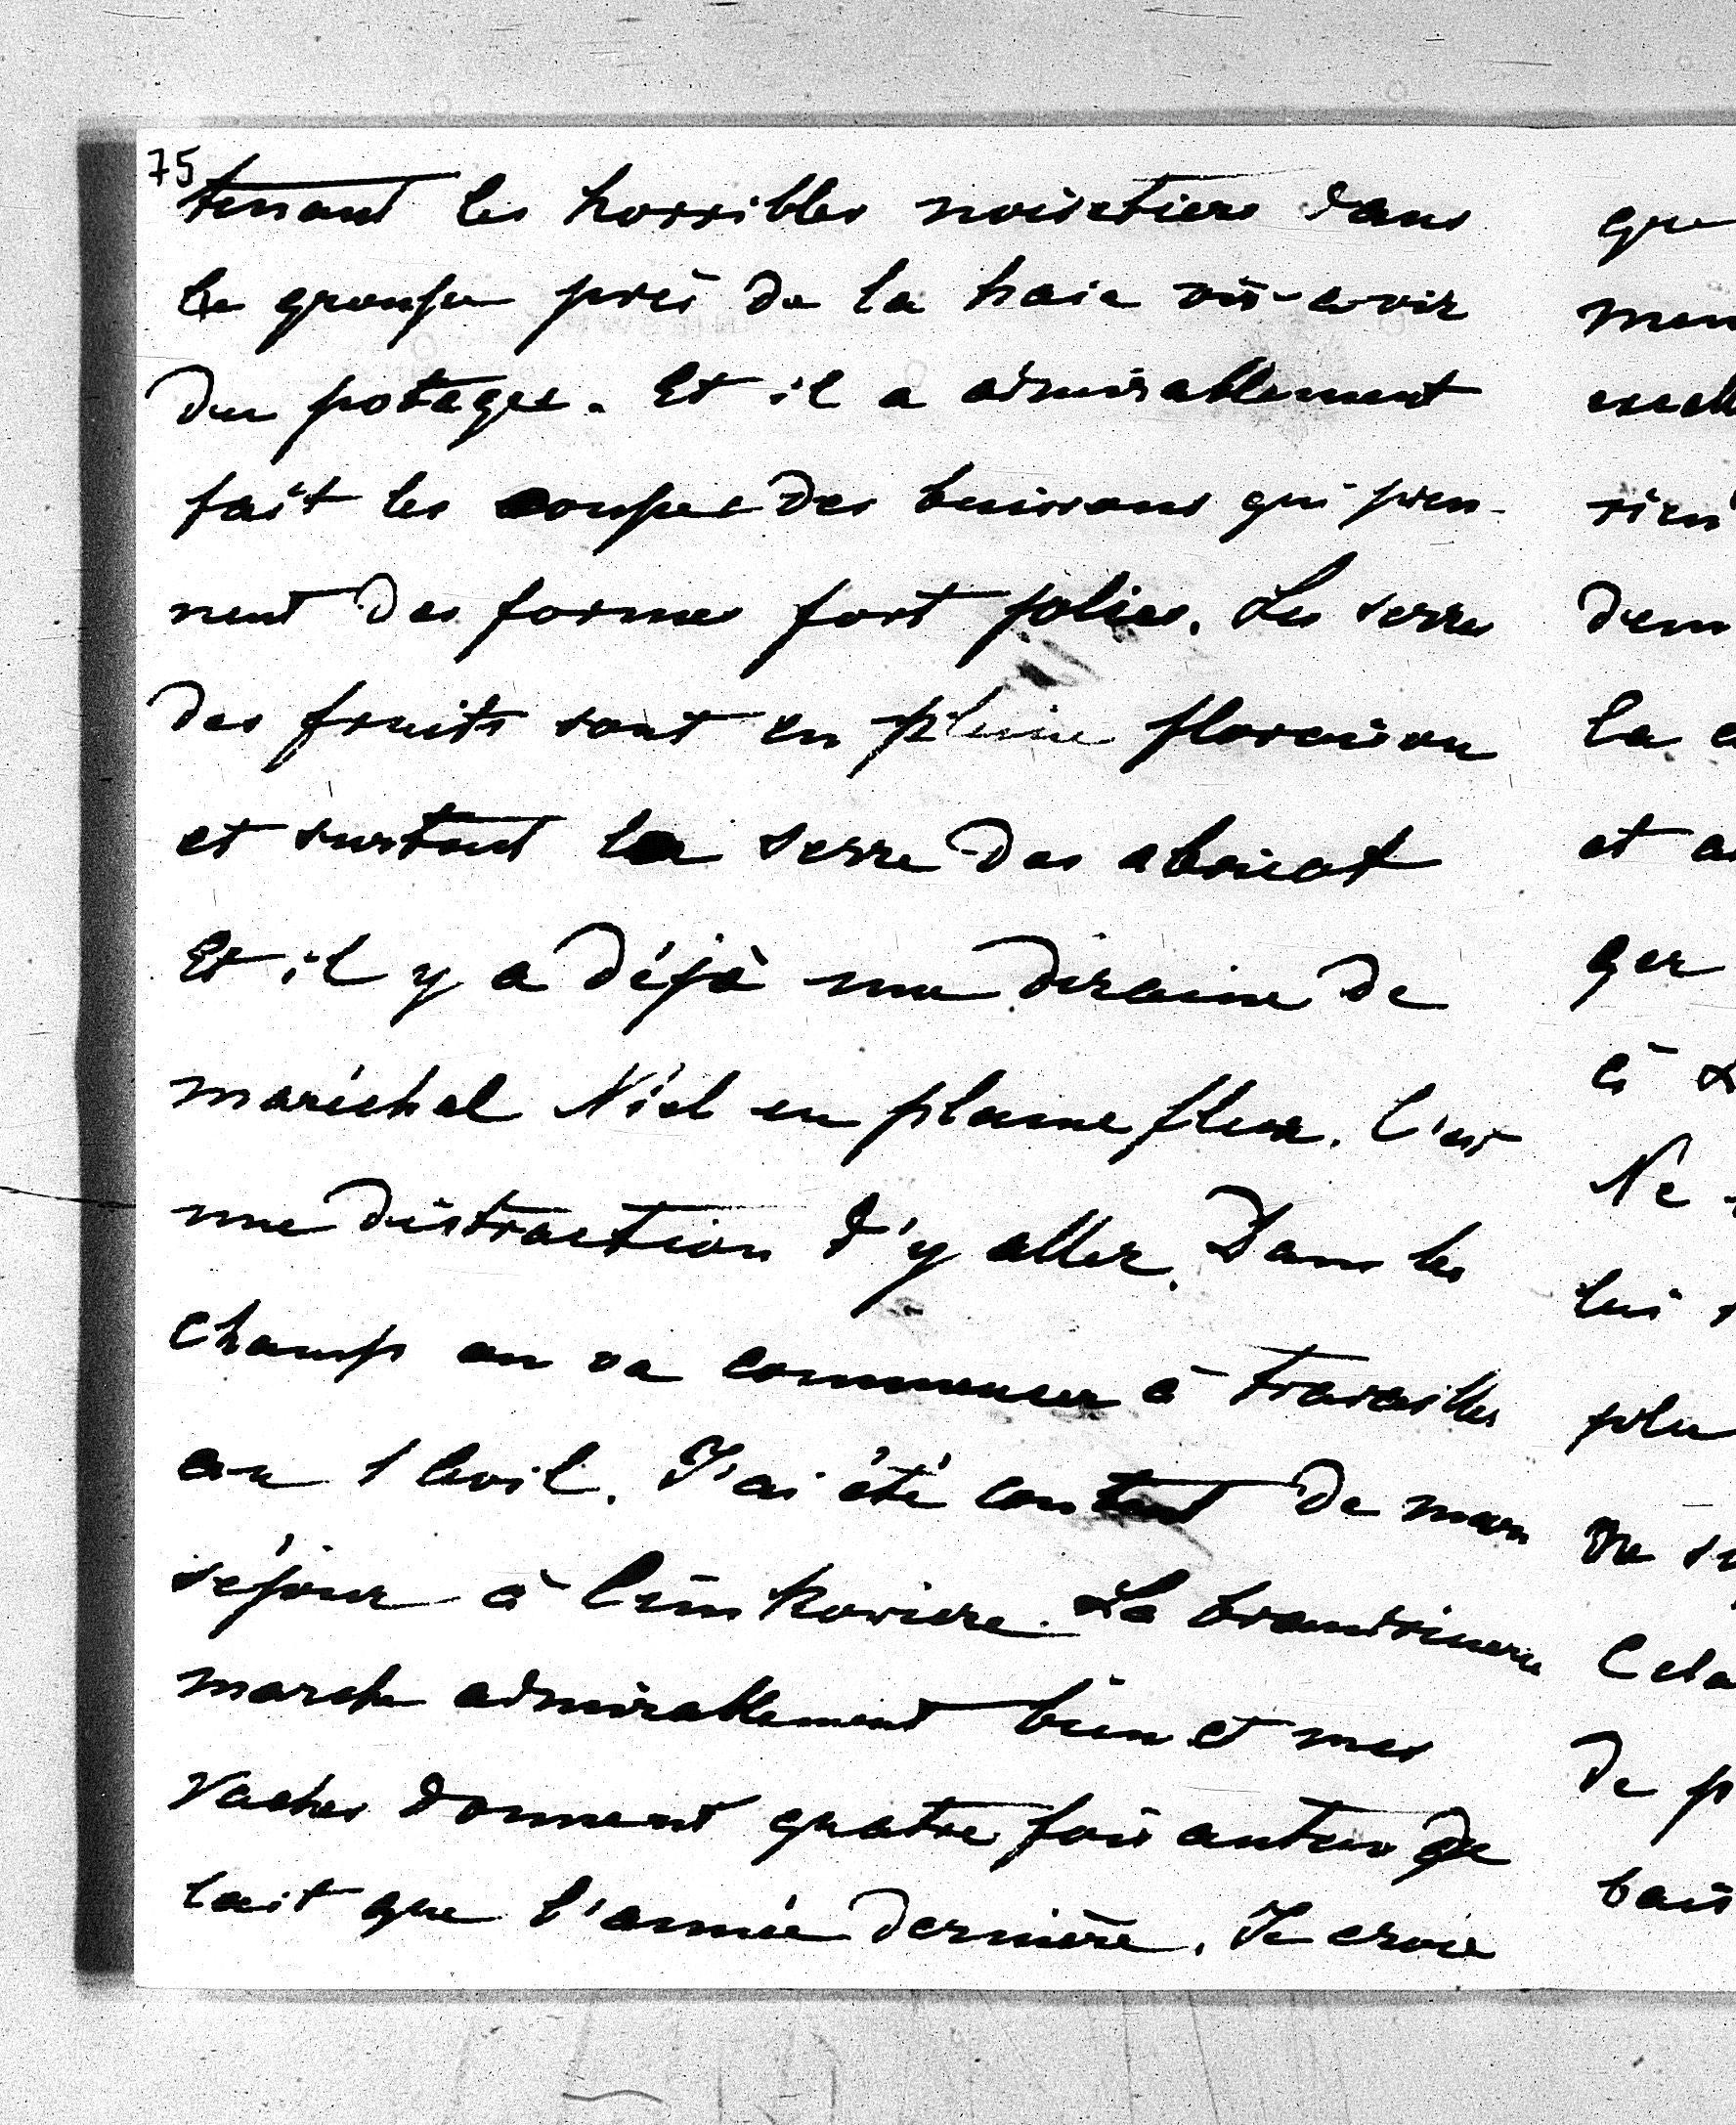 75
tenant les horribles noisetiers dans
le groupe près de la haie vis-a-vis
du potager. Et il a admirablement
fait les coupes des buissons qui pren-
nent des formes fort jolies. Les serres
des fruits sont en pleine floraison
et surtout la serre des abricot
Et il y a déjà une dizaine de
maréchal Niel en plaine fleur. C'est
une distraction d'y aller. Dans les
champs on va commencer à travailler
au 1 avril. J'ai été content de mon
séjour à
marche admirablement bien et mes
vaches donnent quatre fois autan de
lait que l'année dernière. Je crois
que
men
rien
dem
la
et
ger
à
Ne
lui
plu
ne
Cela
de p